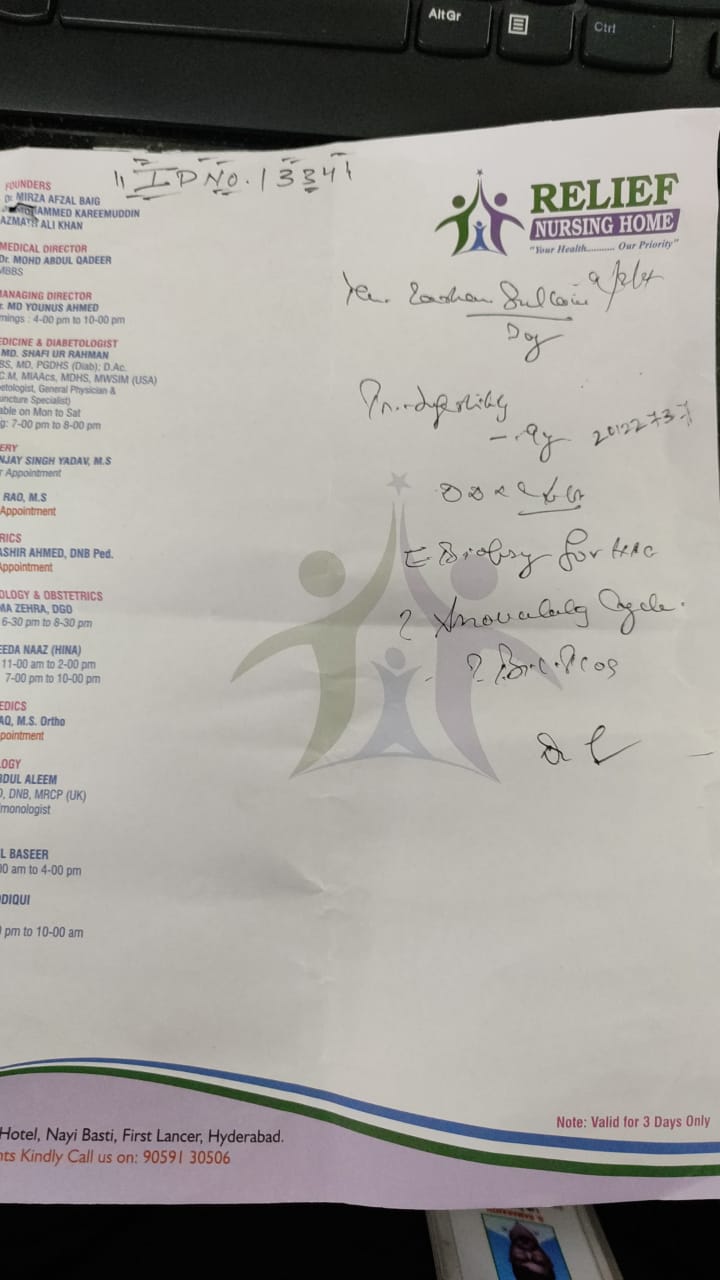 AltGr
Ctrl
"IP No. 13341
FOUNDERS
Dr. MIRZA AFZAL BAIG
MOHAMMED KAREEMUDDIN
AZMATH ALI KHAN
MEDICAL DIRECTOR
Dr. MOHD ABDUL QADEER
MBBS
MANAGING DIRECTOR
MD YOUNUS AHMED
mings : 4-00 pm to 10-00 pm
EDICINE & DIABETOLOGIST
MD. SHAFI UR RAHMAN
BS, MD, PGDHS (Diab); D.Ac.
C.M, MIAAcs, MDHS, MWSIM (USA)
etologist, General Physician &
uncture Specialist)
able on Mon to Sat
g: 7-00 pm to 8-00 pm
ERY
NJAY SINGH YADAV, M.S
r Appointment
RAO, M.S
Appointment
RICS
ASHIR AHMED, DNB Ped.
Appointment
OLOGY & OBSTETRICS
MA ZEHRA, DGO
6-30 pm to 8-30 pm
EEDA NAAZ (HINA)
11-00 am to 2-00 pm
7-00 pm to 10-00 pm
EDICS
AQ, M.S. Ortho
pointment
LOGY
BDUL ALEEM
D, DNB, MRCP (UK)
monologist
L BASEER
00 am to 4-00 pm
DIQUI
pm to 10-00 am
RELIEF
NURSING HOME
"Your Health.......... Our Priority"
Sultana
- 9y
Biopsy for
? Anovulatory Cycle.
? PCOS
Note: Valid for 3 Days Only
Hotel, Nayi Basti, First Lancer, Hyderabad.
nts Kindly Call us on: 90591 30506